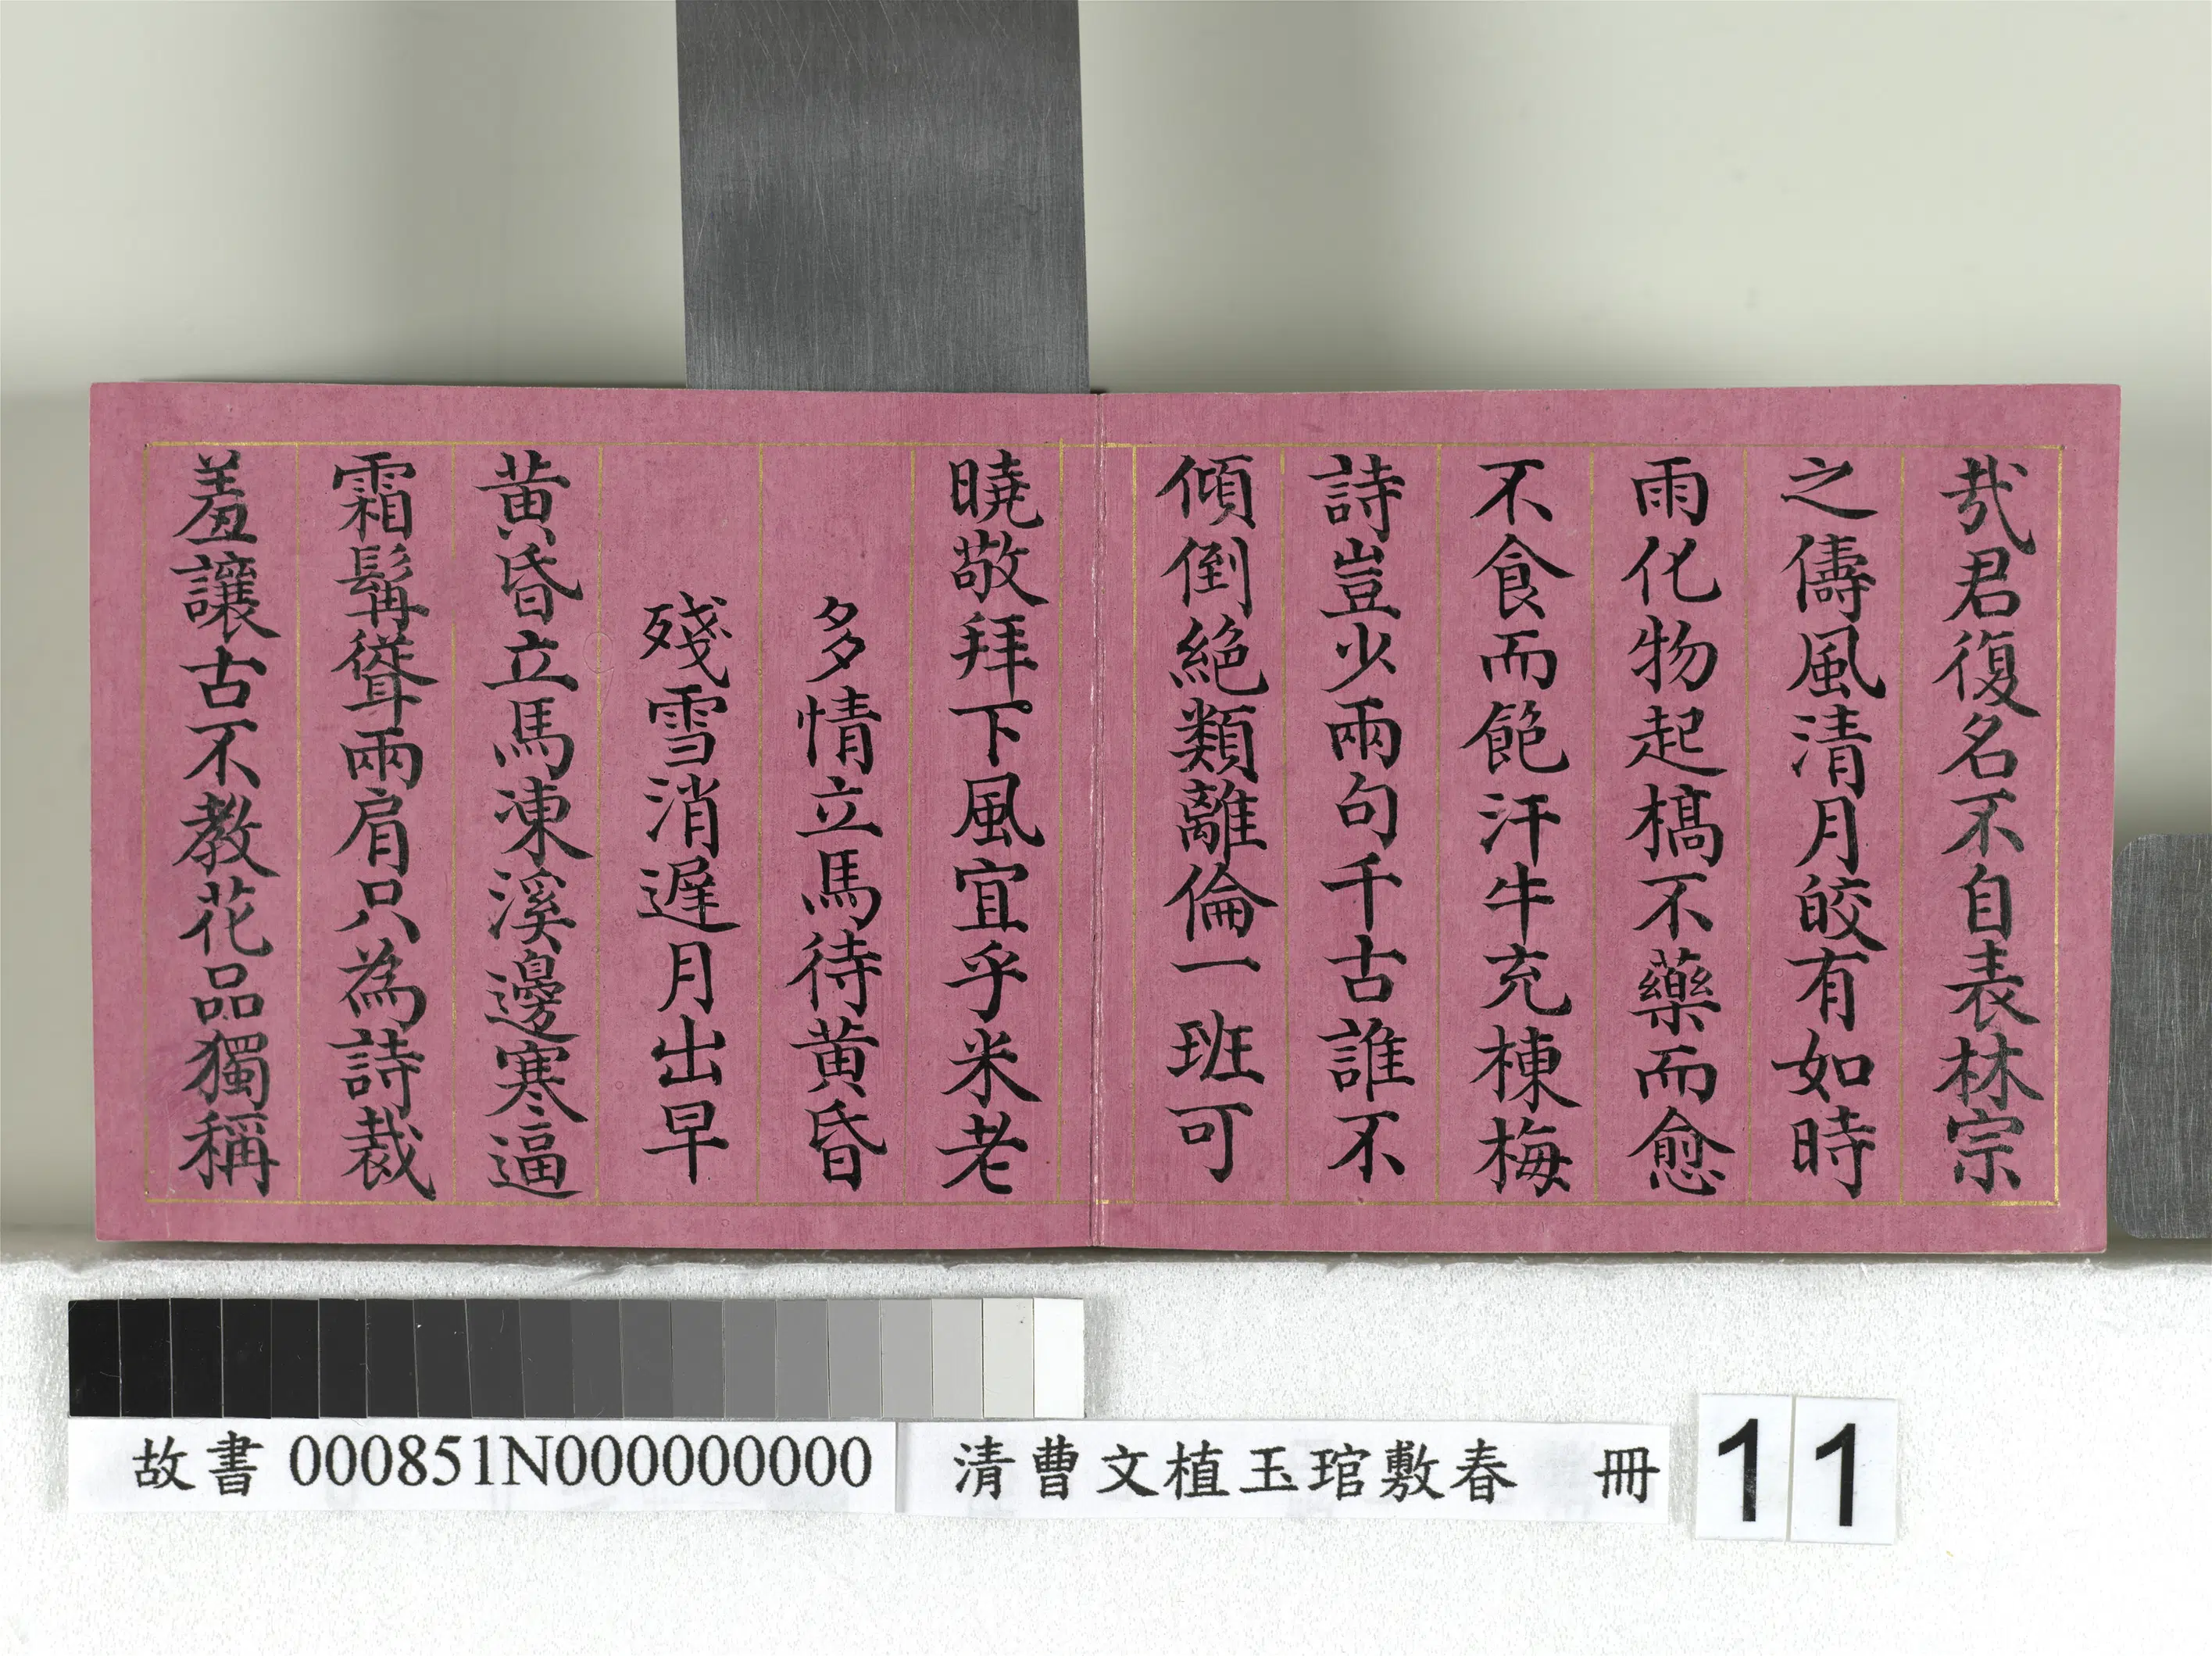 哉君復名不自表林宗
之儔風清月皎有如時
雨化物起槁不藥而愈
不食而飽汗牛充棟梅
詩豈少兩句千古誰不
傾倒絕類離倫一班可
曉敬拜下風宜乎米老
多情立馬待黃昏
殘雪消遲月出早
黃昏立馬凍溪邊寒逼
霜髯聳兩肩只為詩裁
羞讓古不教花品獨稱
故書 000851N000000000 清曹文植玉琯敷春 冊 11